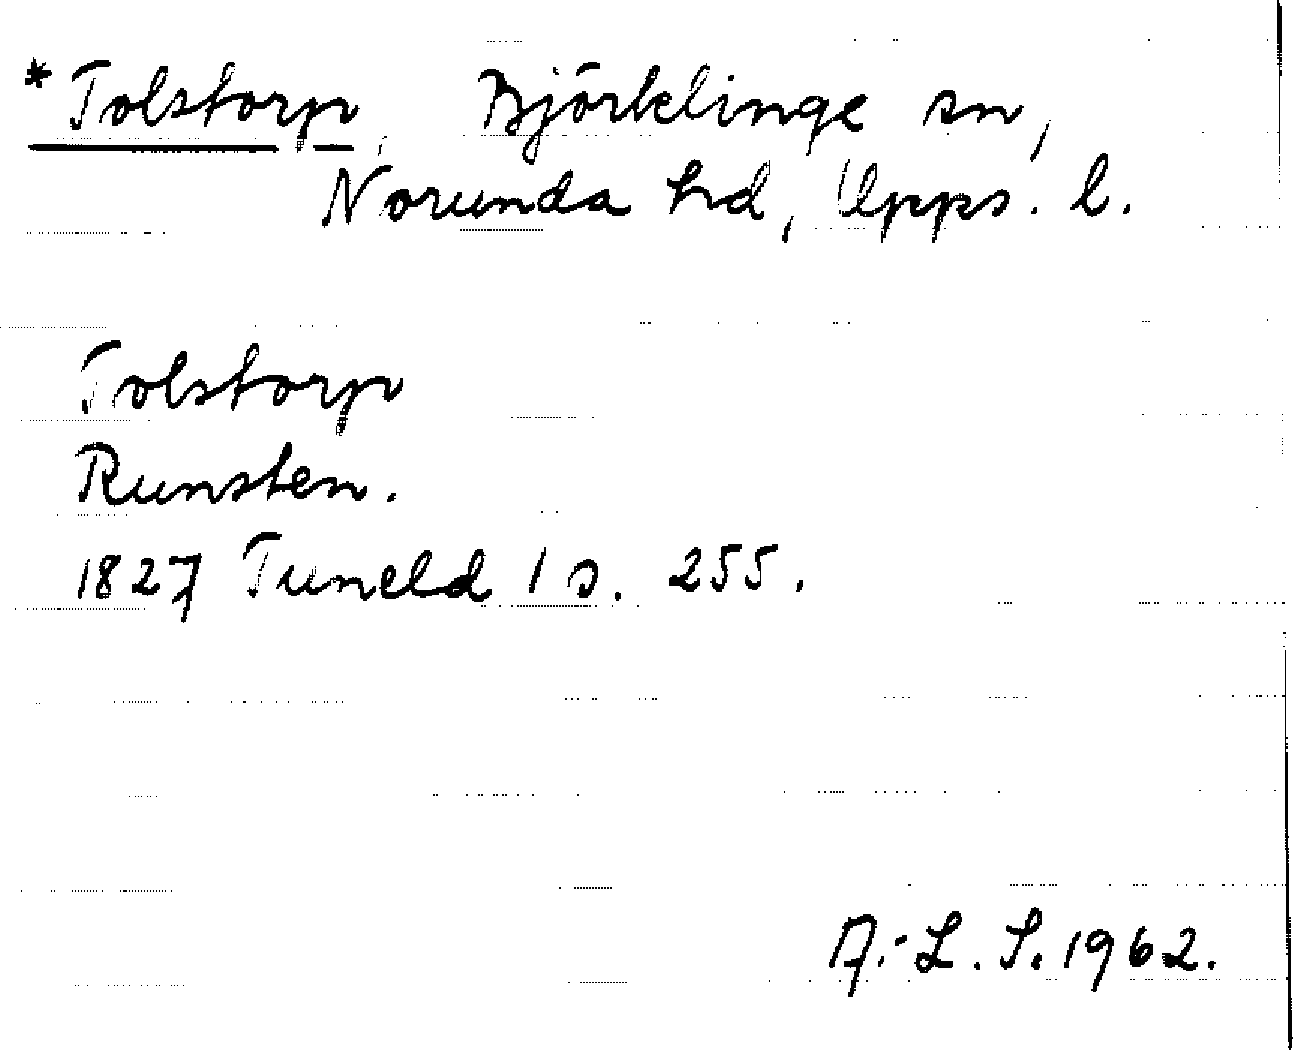 *Tolstorp, Björklinge sn,
Norunda hd, Upps. l.
Tolstorp
Runsten.
1827 Tuneld 1 s. 255.
A.-L. S. 1962.